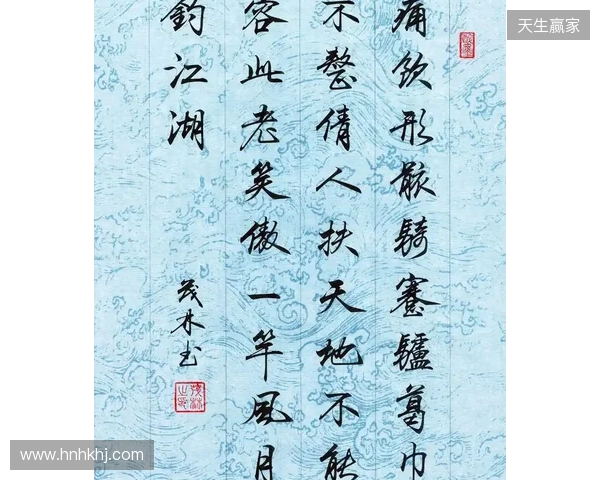 天生赢家
痛饮形骸騎蹇驢葛巾
不整倩人扶天地不能
容此老笑傲一竿風月
釣江湖
茂林书
www.hnhkhj.com